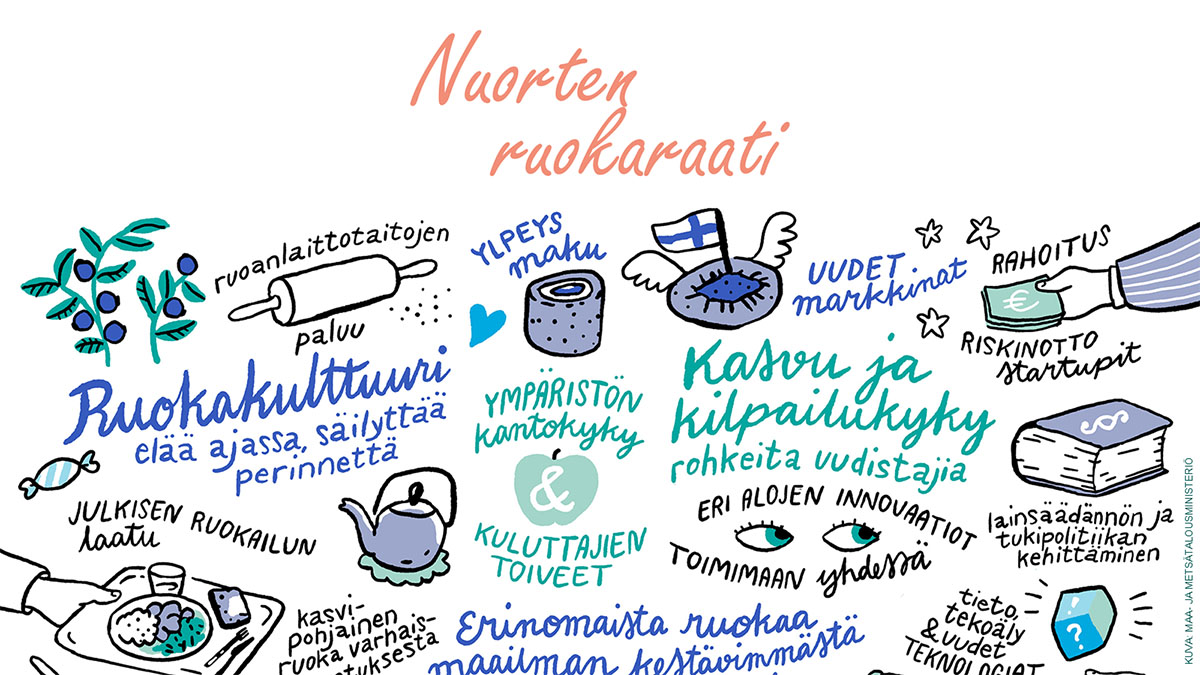 Nuorten
ruokaraati
ruoanlaittotaitojen
paluu
YLPEYS
maku
UUDET
markkinat
RAHOITUS
RISKINOTTO
startupit
Ruokakulttuuri
elää ajassa, säilyttää
perinnettä
YMPÄRISTÖN
kantokyky
&
KULUTTAJIEN
TOIVEET
Kasvu ja
kilpailukyky
rohkeita uudistajia
ERI ALOJEN INNOVAATIOT
TOIMIMAAN yhdessä
§
lainsäädännön ja
tukipolitiikan
kehittäminen
€
JULKISEN RUOKAILUN
laatu
kasvi-
pohjainen
ruoka varhais-
Erinomaista ruokaa
maailman kestävimmästä
tieto,
tekoäly
& uudet
TEKNOLOGIAT
? ?
KUVA: MAA- JA METSÄTALOUSMINISTERIÖ